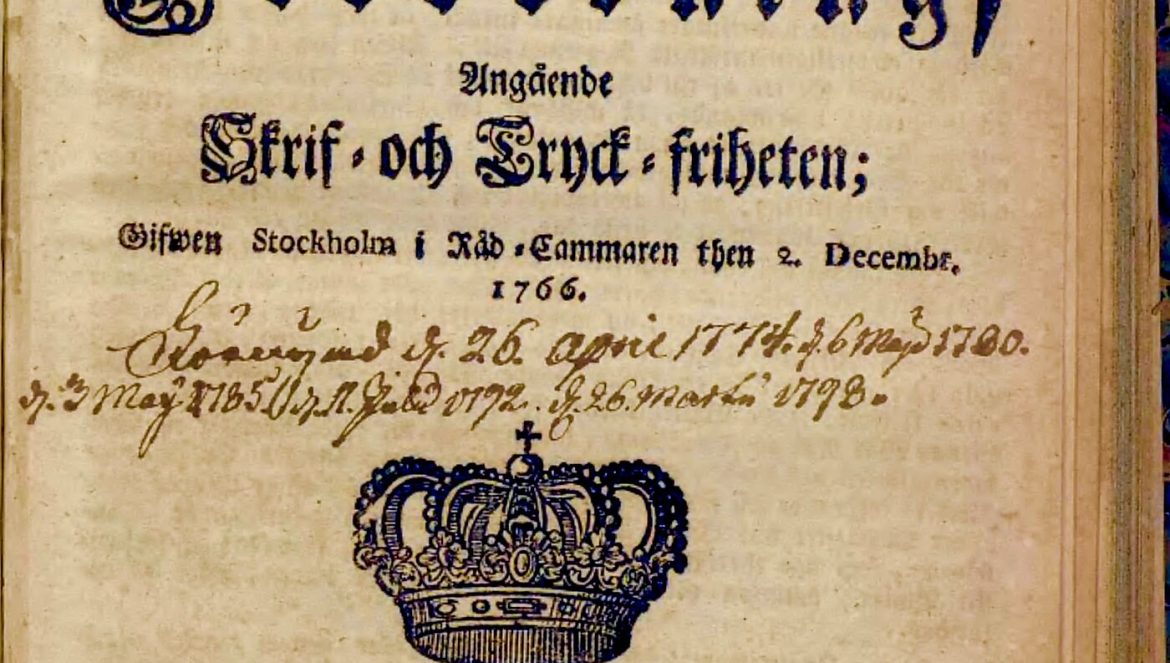 Angående
Skrif-och Tryck-friheten;
Gifwen Stockholm i Råd-Cammaren then 2. Decembr.
1766.
d. 26. april 1774. d. 6 Maji 1780.
d. 3 May 1785 1792. d. 26. Martii 1798.